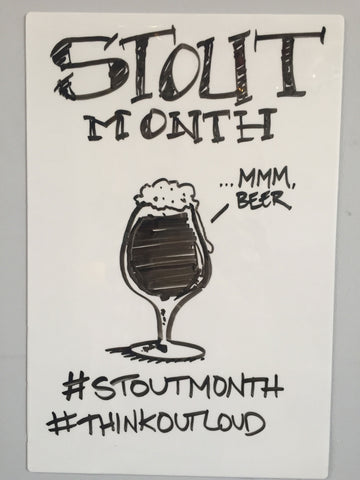 STOUT
MONTH
...MMM,
BEER
#STOUTMONTH
#THINKOUTLOUD